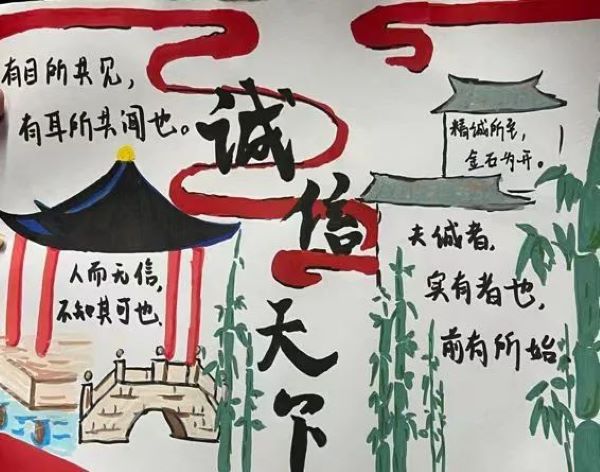 有目所共见，
有耳所共闻也。
诚
信
天
下
人而无信，
不知其可也、
精诚所至，
金石为开。
夫诚者，
实有者也，
前有所始